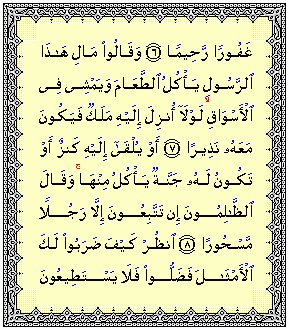 غَفُورًا رَّحِيمًا ٦ وَقَالُوا۟ مَالِ هَـٰذَا
ٱلرَّسُولِ يَأْكُلُ ٱلطَّعَامَ وَيَمْشِى فِى
ٱلْأَسْوَاقِ ۙ لَوْلَآ أُنزِلَ إِلَيْهِ مَلَكٌ فَيَكُونَ
مَعَهُۥ نَذِيرًا ٧ أَوْ يُلْقَىٰٓ إِلَيْهِ كَنزٌ أَوْ
تَكُونُ لَهُۥ جَنَّةٌ يَأْكُلُ مِنْهَا ۚ وَقَالَ
ٱلظَّـٰلِمُونَ إِن تَتَّبِعُونَ إِلَّا رَجُلًا
مَّسْحُورًا ٨ ٱنظُرْ كَيْفَ ضَرَبُوا۟ لَكَ
ٱلْأَمْثَـٰلَ فَضَلُّوا۟ فَلَا يَسْتَطِيعُونَ